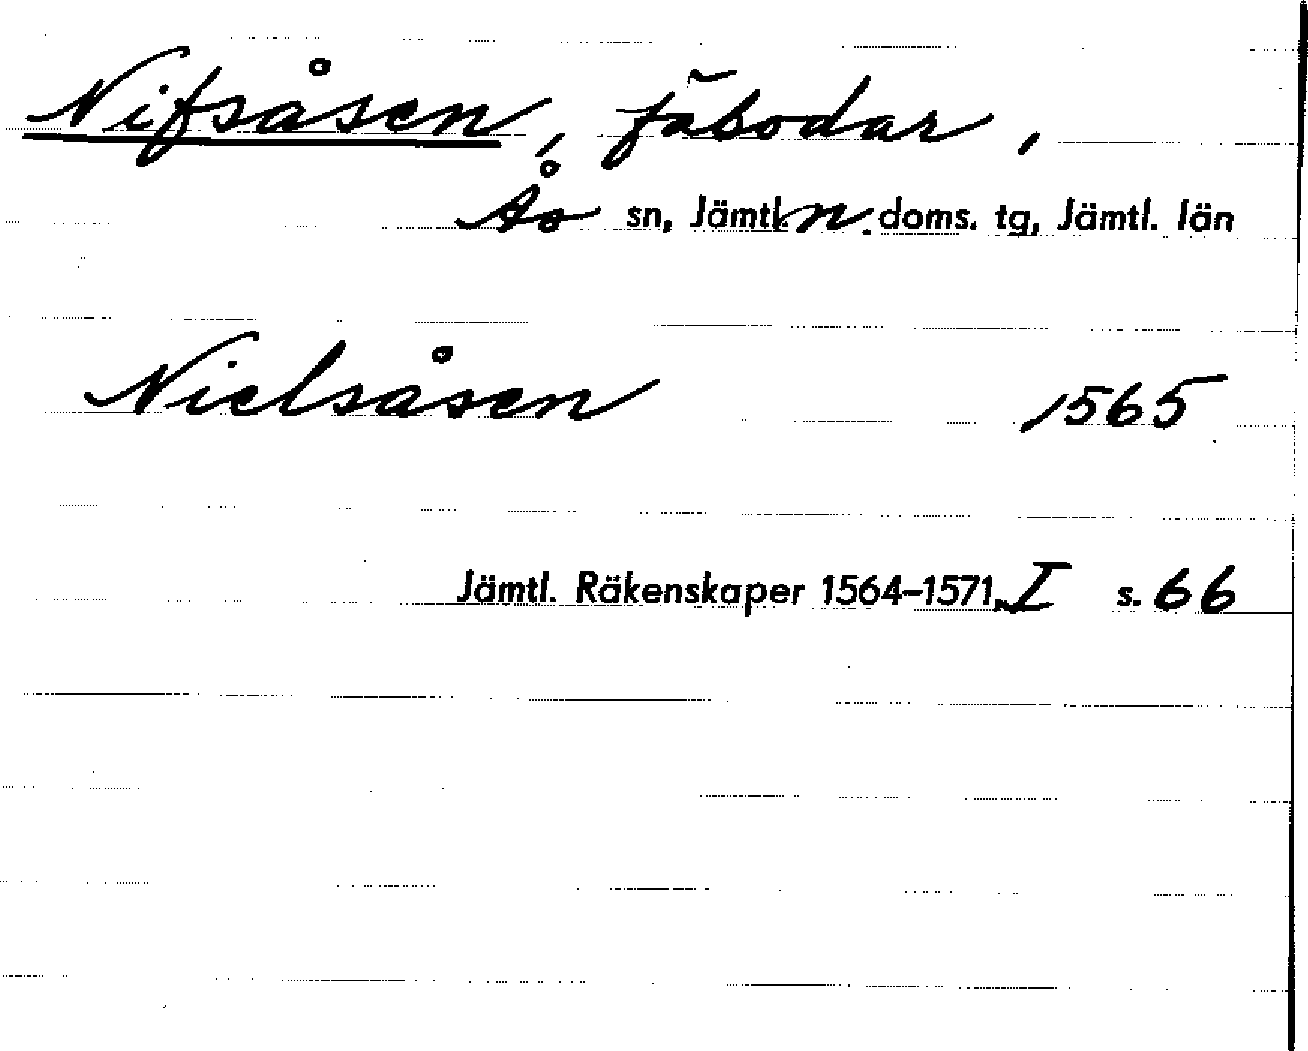 Nifsåsen, fäbodar,
Ås sn, Jämtl. n. doms. tg, Jämtl. län
Nielsåsen 1565
Jämtl. Räkenskaper 1564–1571, I s. 66